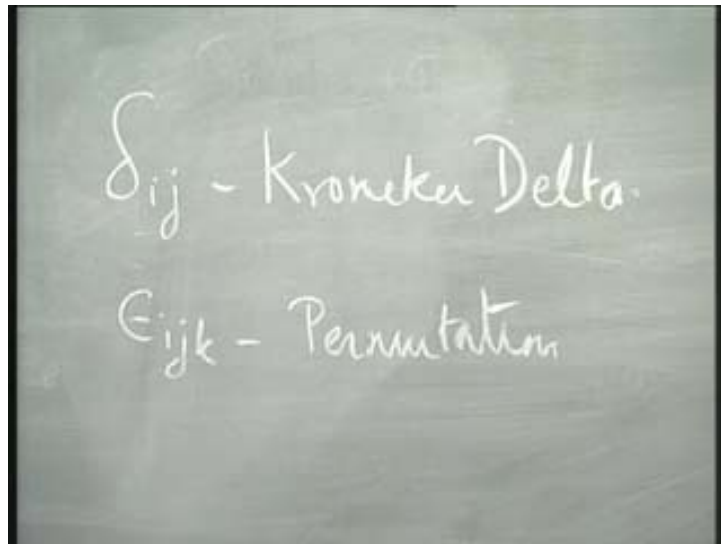 δij - Kroneker Delta.
ϵijk - Permutation